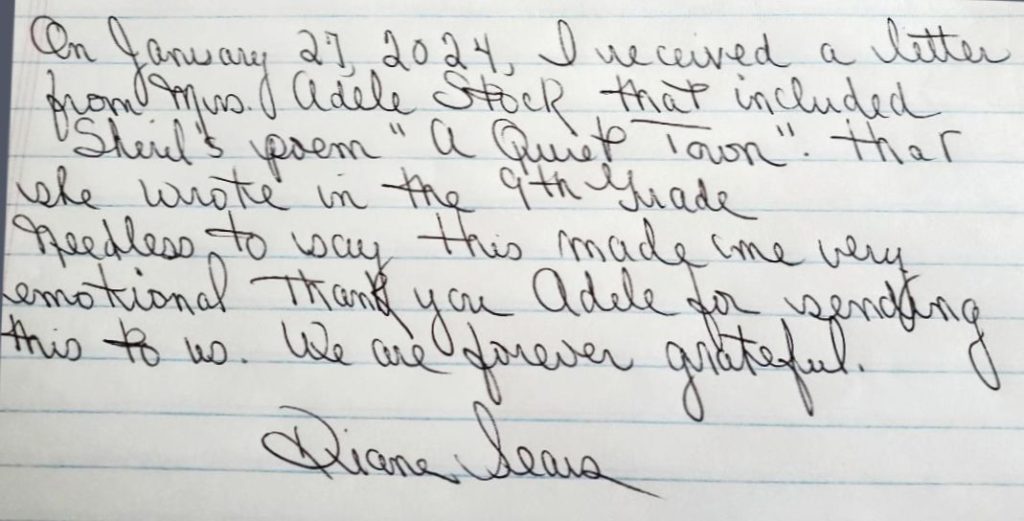 On January 27, 2024, I received a letter
from Mrs. Adele Stock that included
"Sheril's poem "A Quiet Town". that
she wrote in the 9th Grade
Needless to say this made me very
emotional Thank you Adele for sending
this to us. We are forever grateful.
Diane Sears